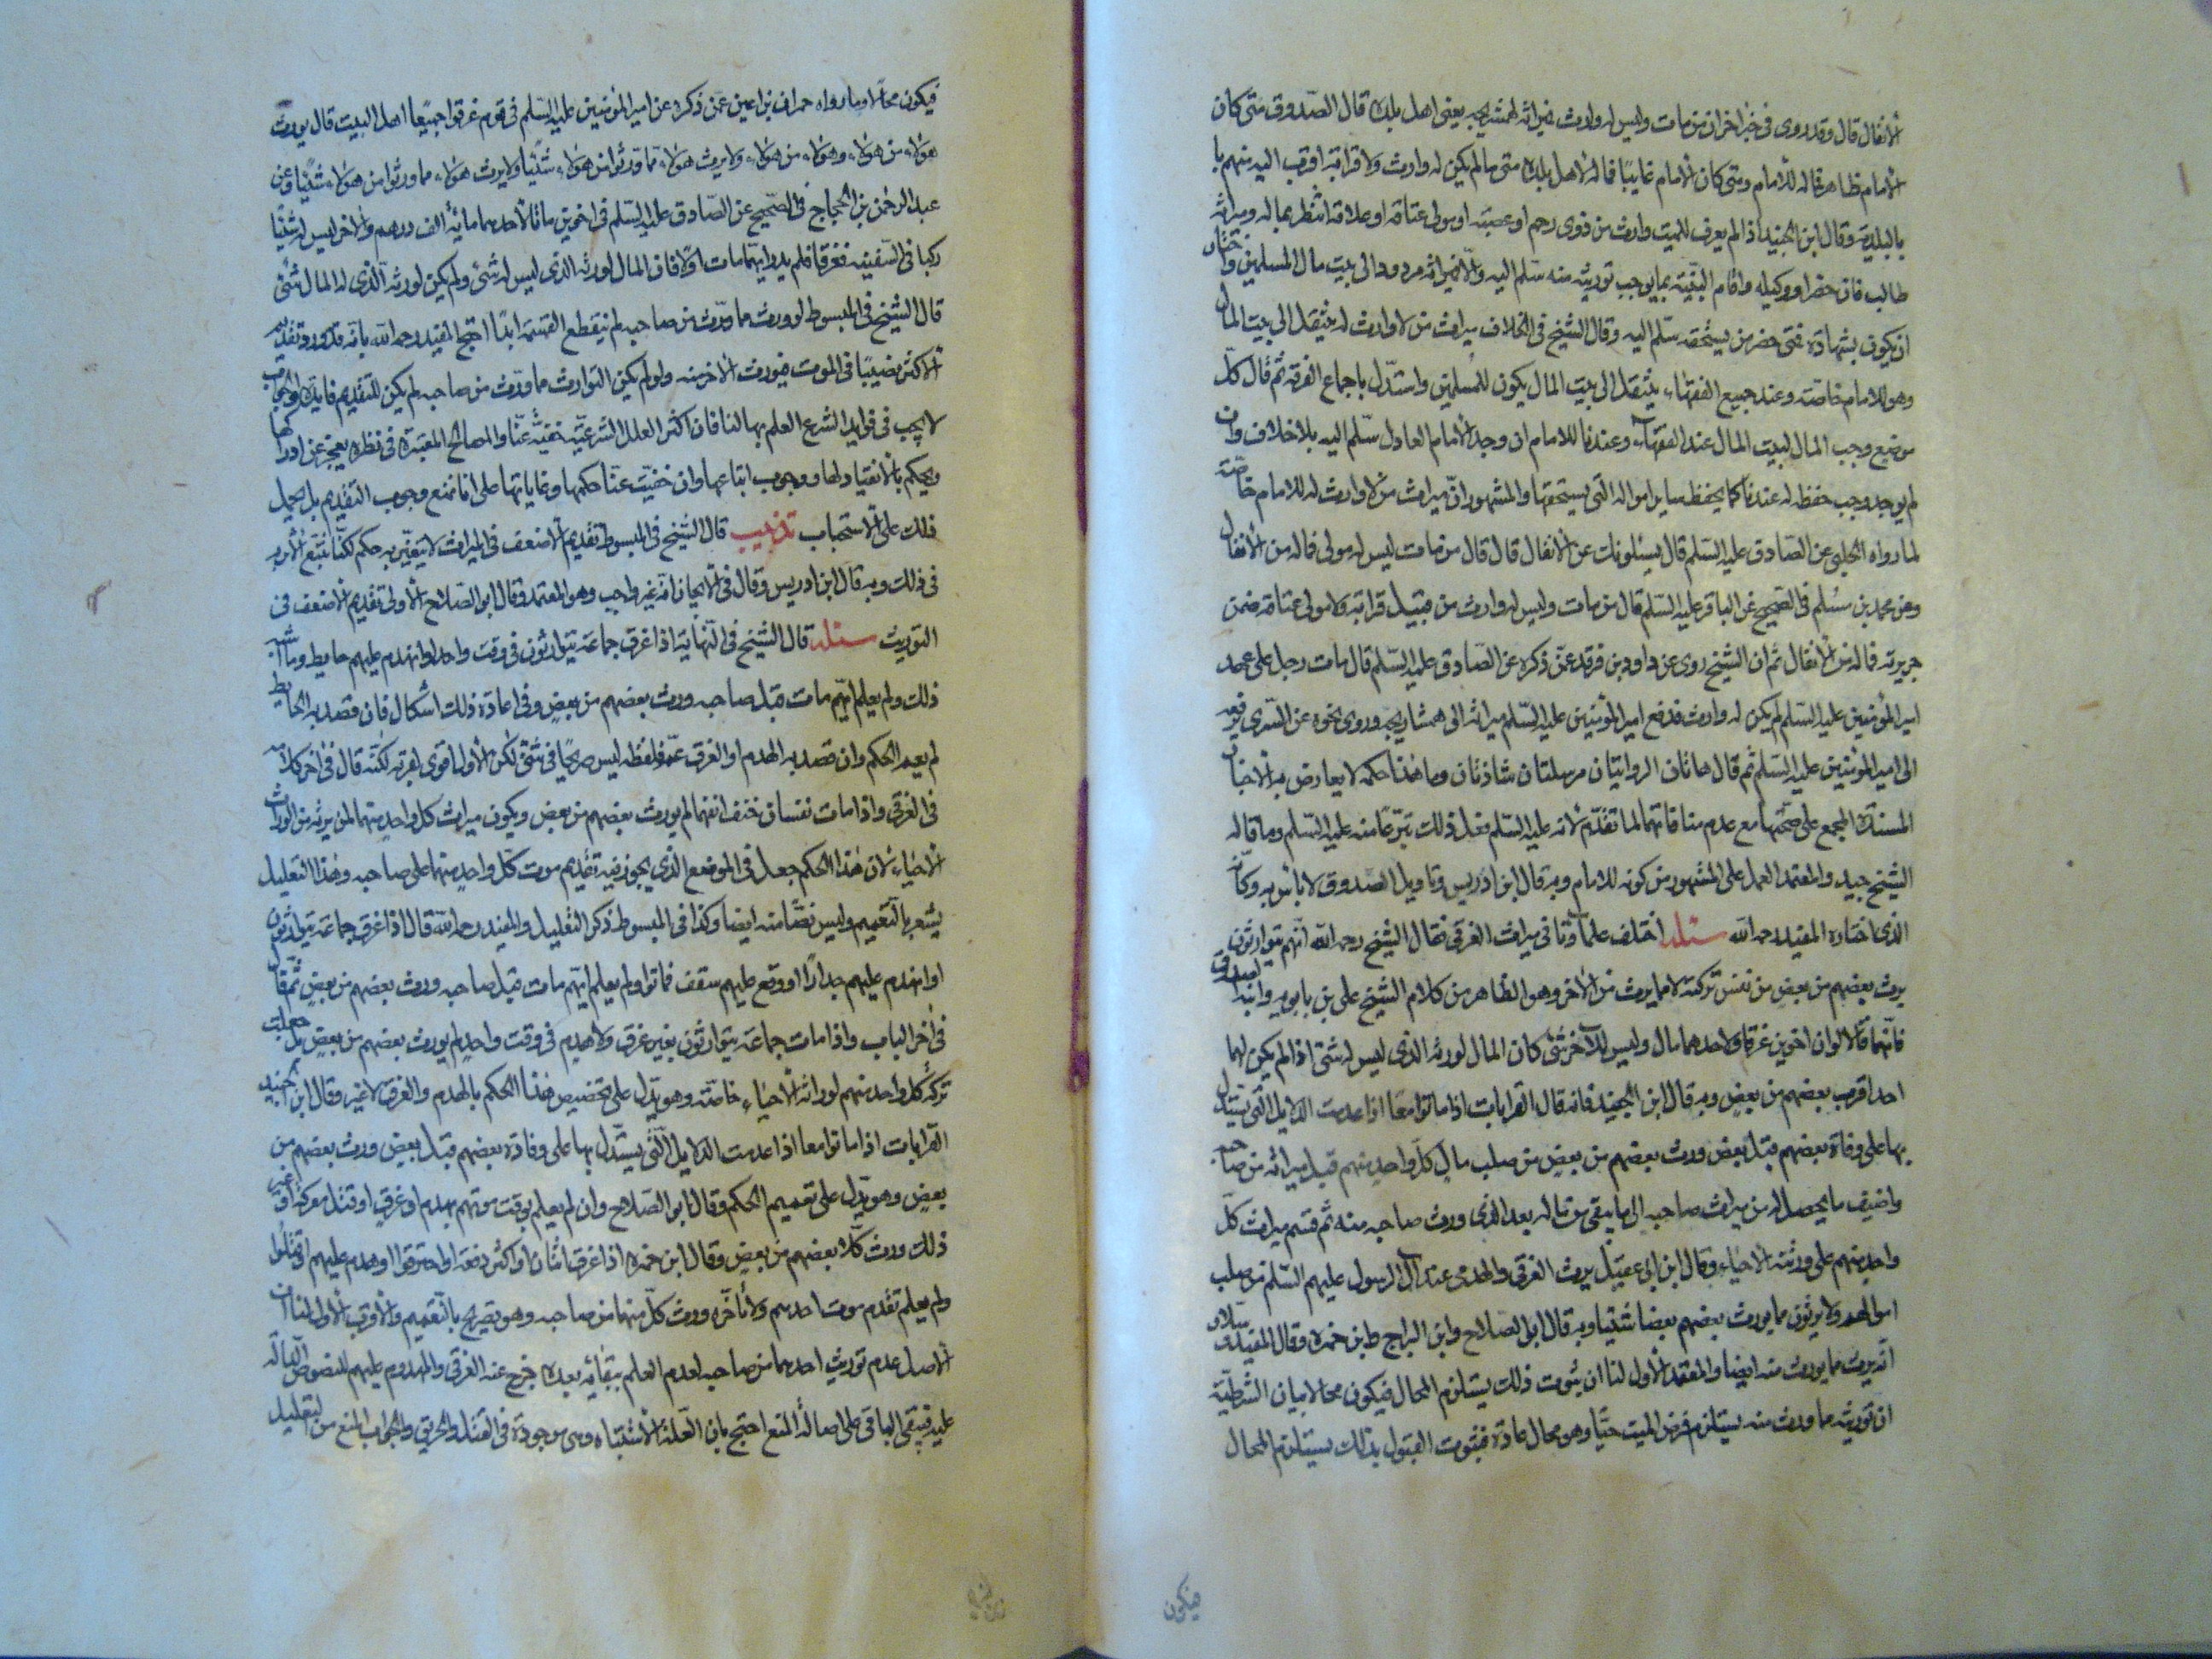 الأنفال قال وقد روى في خبر اخر ان من مات وليس له وارث فميراثه لهمشهريجه يعني اهل بلده قال الصدوق متى كان
الأمام ظاهرا فماله للأمام ومتى كان الأمام غايبًا فماله لأهل بلده متى ما لم يكن له وارث ولا قرابة اقرب اليه منهم با
بالبلدية وقال ابن الجنيد اذا لم يعرف للميت وارث من ذوي رحم او عصبة او مولى عتاقه او علاقة انتظر بماله وميراثه
طالب فان حضر او وكيله واقام البينة بما يوجب توريثه منه سلم اليه والا فميراثه مردود الى بيت مال المسلمين واختار
ان يكون بشهادة فمتى حضر من يستحقه سلم اليه وقال الشيخ في الخلاف ميراث من لا وارث له ينتقل الى بيت المال
وهو للامام خاصة وعند جميع الفقهاء ينتقل الى بيت المال يكون للمسلمين واستدل باجماع الفرقة ثم قال كل
موضع وجب المال لبيت المال عند الفقهاء وعندنا للامام ان وجد الأمام العادل سلم اليه بلا خلاف وان
لم يوجد وجب حفظه له عندنا كما يحفظ ساير امواله التي يستحقها والمشهور ان ميراث من لا وارث له للامام خاصة
لما رواه الحلبي عن الصادق عليه السلم قال يسئلونك عن الأنفال قال قال من مات وليس له مولى فماله من الأنفال
وعن محمد بن مسلم في الصحيح عن الباقر عليه السلم قال من مات وليس له وارث من قبيل قرابته ولا مولى عتاقه ضمن
جريرته فماله من الأنفال ثم ان الشيخ روى عن داود بن فرقد عمن ذكره عن الصادق عليه السلم قال مات رجل على عهد
امير المؤمنين عليه السلم لم يكن له وارث فدفع امير المؤمنين عليه السلم ميراثه الى همشاريجه وروى نحوه عن السري يرفعه
الى امير المؤمنين عليه السلم ثم قال هاتان الروايتان مرسلتان شاذتان وما هذا حكمه لا يعارض به الأخبار
المسندة المجمع على صحتها مع عدم منافاتهما لما تقدم لأنه عليه السلم فعل ذلك تبرعًا منه عليه السلم وما قاله
الشيخ جيد والمعتمد العمل على المشهور من كونه للامام وبه قال ابن ادريس وتاويل الصدوق لا باس به وكانه
الذي اختاره المفيد رحمه الله مسئلة اختلف علماؤنا في ميراث الغرقى فقال الشيخ رحمه الله انهم يتوارثون
يرث بعضهم من بعض من نفس تركته لا مما يرث من الاخر وهو الظاهر من كلام الشيخ علي بن بابويه وابنه الصدوق
فانهما قالا لو ان اخوين غرقا ولاحدهما مال وليس للآخر شئ كان المال لورثة الذي ليس له شئ اذا لم يكن لهما
احد اقرب بعضهم من بعض وبه قال ابن الجنيد فانه قال القرابات اذا ماتوا معا اذا عدمت الدلايل التي يستدل
بها على وفاة بعضهم قبل بعض ورث بعضهم من بعض من صلب مال كل واحد منهم قبل ميراثه من صاحبه
واضيف ما يحصل له من ميراث صاحبه الى ما يبقى من ماله بعد الذي ورث صاحبه منه ثم قسم ميراث كل
واحد منهم على ورثته الاحياء وقال ابن ابي عقيل يرث الغرقى والهدمى عند آل الرسول عليهم السلم من صلب
اموالهم ولا يرثون مما يورث بعضهم بعضا شيئا وبه قال ابو الصلاح وابن البراج وابن حمزه وقال المفيد وسلار
انه يرث مما يورث منه ايضا والمعتمد الأول لنا ان ثبوت ذلك يستلزم المحال فيكون محالا بيان الشرطية
ان توريثه مما ورث منه يستلزم فرض الميت حيًا وهو محال عادة فثبوت القبول بذلك يستلزم المحال
فيكون
فيكون محالا وما رواه حمران بن اعين عمن ذكره عن امير المؤمنين عليه السلم في قوم غرقوا جميعًا اهل البيت قال يورث
هؤلاء من هؤلاء وهؤلاء من هؤلاء ولا يرث هؤلاء مما ورثوا من هؤلاء شيئا ولا يورث هؤلاء مما ورثوا من هؤلاء شيئًا وعن
عبد الرحمن بن الحجاج في الصحيح عن الصادق عليه السلم في اخوين ماتا لأحدهما مائة الف درهم والاخر ليس له شيئًا
ركبا في السفينه فغرقا فلم يدر ايهما مات اولا فان المال لورثة الذي ليس له شئ ولم يكن لورثه الذي له المال شئ
قال الشيخ في المبسوط لو ورث مما ورث من صاحبه لم ينقطع القسمة ابدًا احتج المفيد رحمه الله بانه قد ورد تقديم
الأكثر نصيبًا في الموت فيورث الأخر منه ولو لم يكن التوارث مما ورث من صاحبه لم يكن للتقديم فايدة والجواب
لا يجب في فوايد الشرع العلم بها لنا فان اكثر العلل الشرعية خفية عنا والمصالح المعتبرة في نظره يعجز عن ادراكها
ويحكم بالأنقياد لها ووجوب اتباعها وان خفيت عنا حكمها وغاياتها على انا نمنع وجوب التقديم بل يحمل
ذلك على الأستحباب تذنيب قال الشيخ في المبسوط تقديم الأضعف في الميراث لا يتغير به حكم لكنا نتبع الأثر به
في ذلك وبه قال ابن ادريس وقال في الأيجاز انه غير واجب وهو المعتمد وقال ابو الصلاح الأولى تقديم الأضعف في
التوريث مسئلة قال الشيخ في النهاية اذا غرق جماعة يتوارثون في وقت واحد او انهدم عليهم حايط وما اشبه
ذلك ولم يعلم ايهم مات قبل صاحبه ورث بعضهم من بعض وفي اعادة ذلك اشكال فان قصد به الحايط
لم يعد الحكم وان قصد به الهدم او الغرق عم فلفظه ليس صريحًا في شئ لكن الأول اقوى لقربه لكنه قال في اخر كلامه
في الغرقى واذا مات نفسان حتف انفهما لم يورث بعضهم من بعض ويكون ميراث كل واحد منهما لمن يرثه من الوراث
الأحياء لان هذا الحكم جعل في الموضع الذي يجوز فيه تقديم موت كل واحد منهما على صاحبه وهذا التعليل
يشعر بالتعميم وليس نصًا منه ايضا وكذا في المبسوط ذكر التعليل والمفيد رحمه الله قال اذا غرق جماعة يتوارثون
او انهدم عليهم جدارًا او وقع عليهم سقف فماتوا ولم يعلم ايهم مات قبل صاحبه ورث بعضهم من بعض ثم قال
في اخر الباب واذا مات جماعة يتوارثون بغير غرق ولا هدم في وقت واحد لم يورث بعضهم من بعض بل جعلت
تركة كل واحد منهم لوراثه الأحياء خاصة وهو يدل على تخصيص هذا الحكم بالهدم والغرق لا غير وقال ابن الجنيد
القرابات اذا ماتوا معا اذا عدمت الدلايل التي يستدل بها على وفاة بعضهم قبل بعض ورث بعضهم من
بعض وهو يدل على تعميم الحكم وقال ابو الصلاح وان لم يعلم بوقت موتهم بهدم او غرق او قتل معركة او غير
ذلك ورث كلا بعضهم من بعض وقال ابن حمزه اذا غرق اثنان او اكثر دفعة او احترقوا او هدم عليهم او قتلوا
ولم يعلم تقدم موت احدهم ولا تأخره ورث كل منهما من صاحبه وهو تصريح بالتعميم والأقرب الأول لنا ان
الأصل عدم توريث احدهما من صاحبه لعدم العلم ببقائه بعده خرج عنه الغرقى والمهدوم عليهم للنصوص الدالة
عليه فيبقى الباقي على اصالة المنع احتج بان العلة الأشتباه وهى موجودة في القتل والحريق والجواب المنع من التعليل